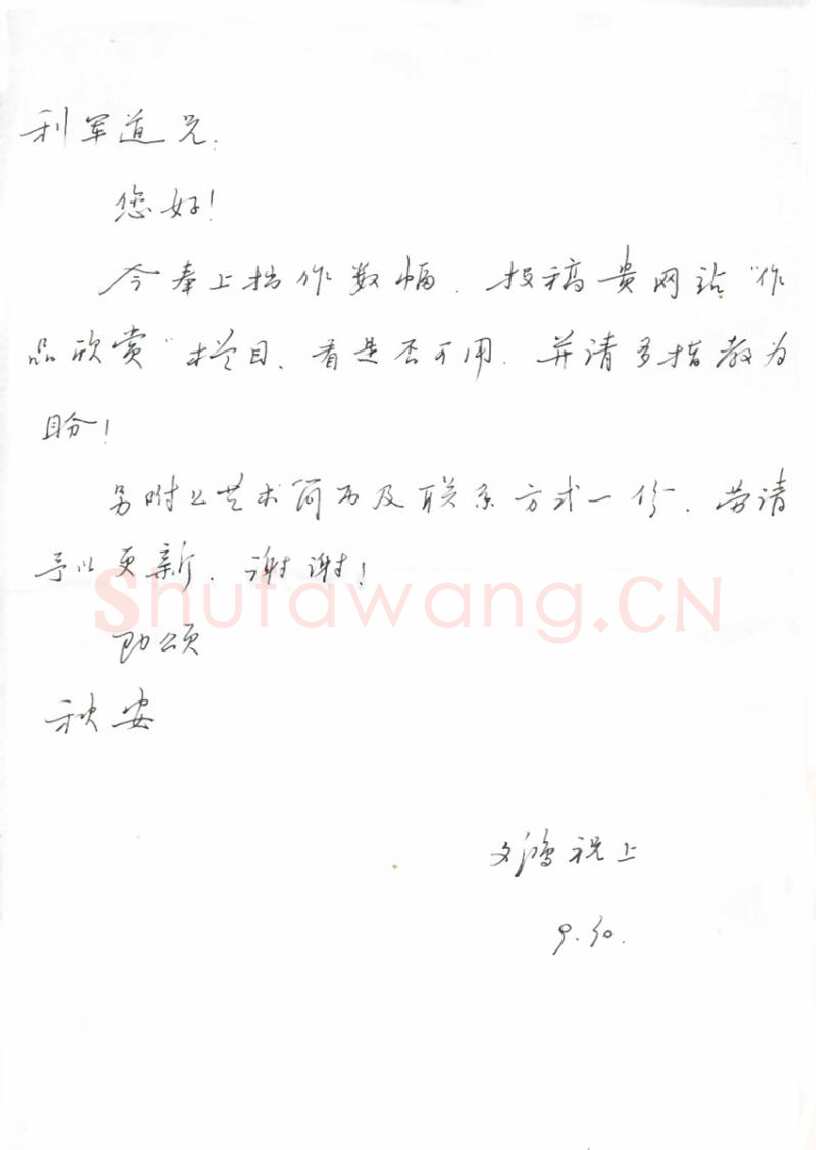 利军道兄:
您好!
今奉上拙作数幅，投稿贵网站"作
品欣赏"栏目，看是否可用，并请多指教为
盼!
另附上艺术简历及联系方式一份，劳请
予以更新，谢谢!
Shufawang.CN
即颂
秋安
文鸿祝上
9.30.